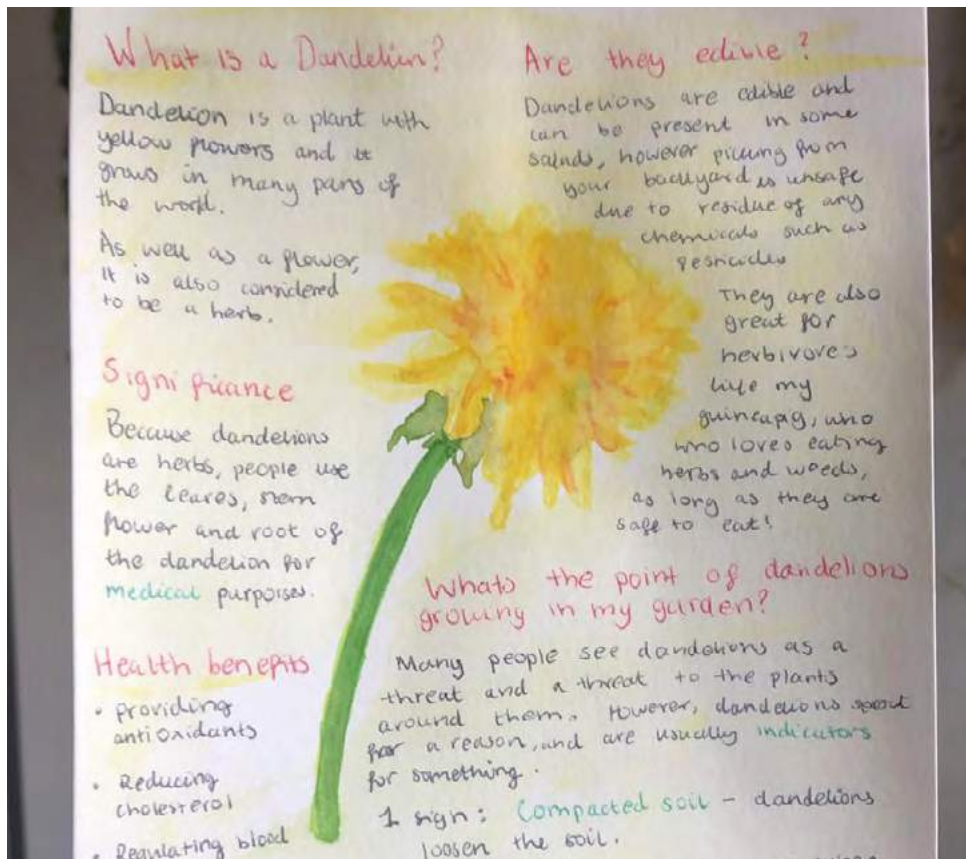 What is a Dandelion?
Dandelion is a plant with
yellow flowers and it
grows in many parts of
the world.
As well as a flower,
it is also considered
to be a herb.
Significance
Because dandelions
are herbs, people use
the leaves, stem
flower and root of
the dandelion for
medical purposes.
Health benefits
• providing
antioxidants
• Reducing
cholesterol
• Regulating blood
Are they edible?
Dandelions are edible and
can be present in some
salads, however picking from
your backyard is unsafe
due to residue of any
chemicals such as
pesticides
They are also
great for
herbivores
like my
guineapig, who
who loves eating
herbs and weeds,
as long as they are
safe to eat!
Whats the point of dandelions
growing in my garden?
Many people see dandelions as a
threat and a threat to the plants
around them. However, dandelions
for a reason, and are usually indicators
for something.
1 sign: Compacted soil - dandelions
loosen the soil.